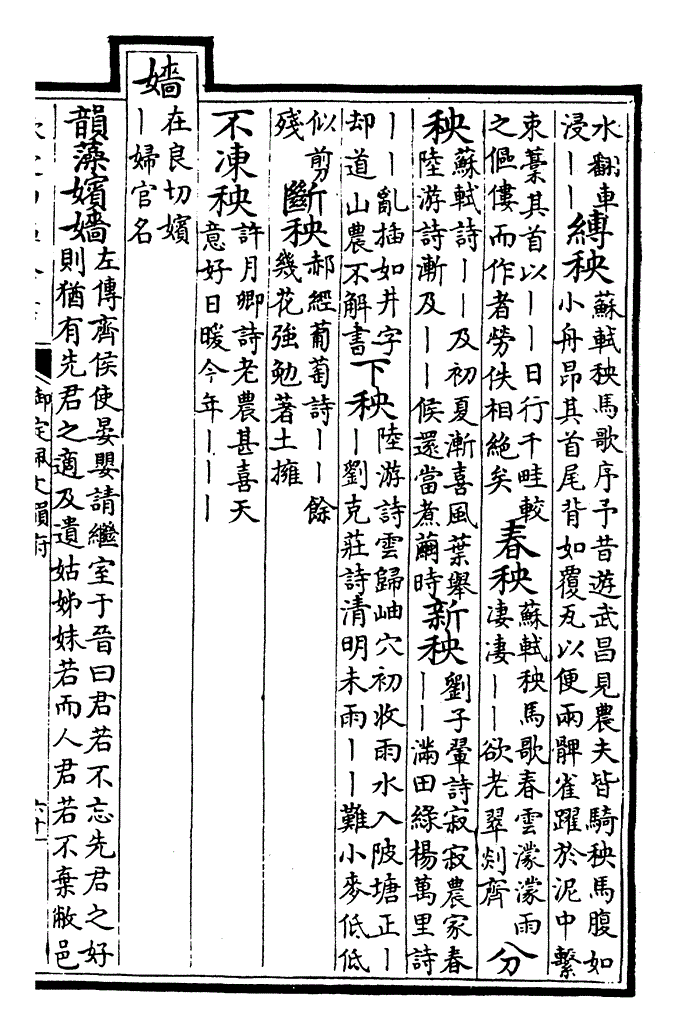 水翻車
浸丨丨
縛秧
蘇軾秧馬歌序予昔遊武昌見農夫皆騎秧馬腹如
小舟昂其首尾背如覆瓦以便兩髀雀躍於泥中繫
束藁其首以丨丨日行千畦較
之傴僂而作者勞佚相絶矣
春秧
蘇軾秧馬歌春雲濛濛雨
凄凄丨丨欲老翠剡齊
分
秧
蘇軾詩丨丨及初夏漸喜風葉舉
陸游詩漸及丨丨候還當煮繭時
新秧
劉子翬詩寂寂農家春
丨丨滿田綠楊萬里詩
丨丨亂插如井字
却道山農不解書
下秧
陸游詩雲歸岫穴初收雨水入陂塘正丨
丨劉克莊詩清明未雨丨丨難小麥低低
似剪
殘
斷秧
郝經葡萄詩丨丨餘
幾花強勉著土擁
不凍秧
許月卿詩老農甚喜天
意好日暖今年丨丨丨
嬙
在良切嬪
丨婦官名
韻藻嬪嬙
左傳齊侯使晏嬰請繼室于晉曰君若不忘先君之好
則猶有先君之適及遺姑姊妹若而人君若不棄敝邑
御定佩文韻府
六十